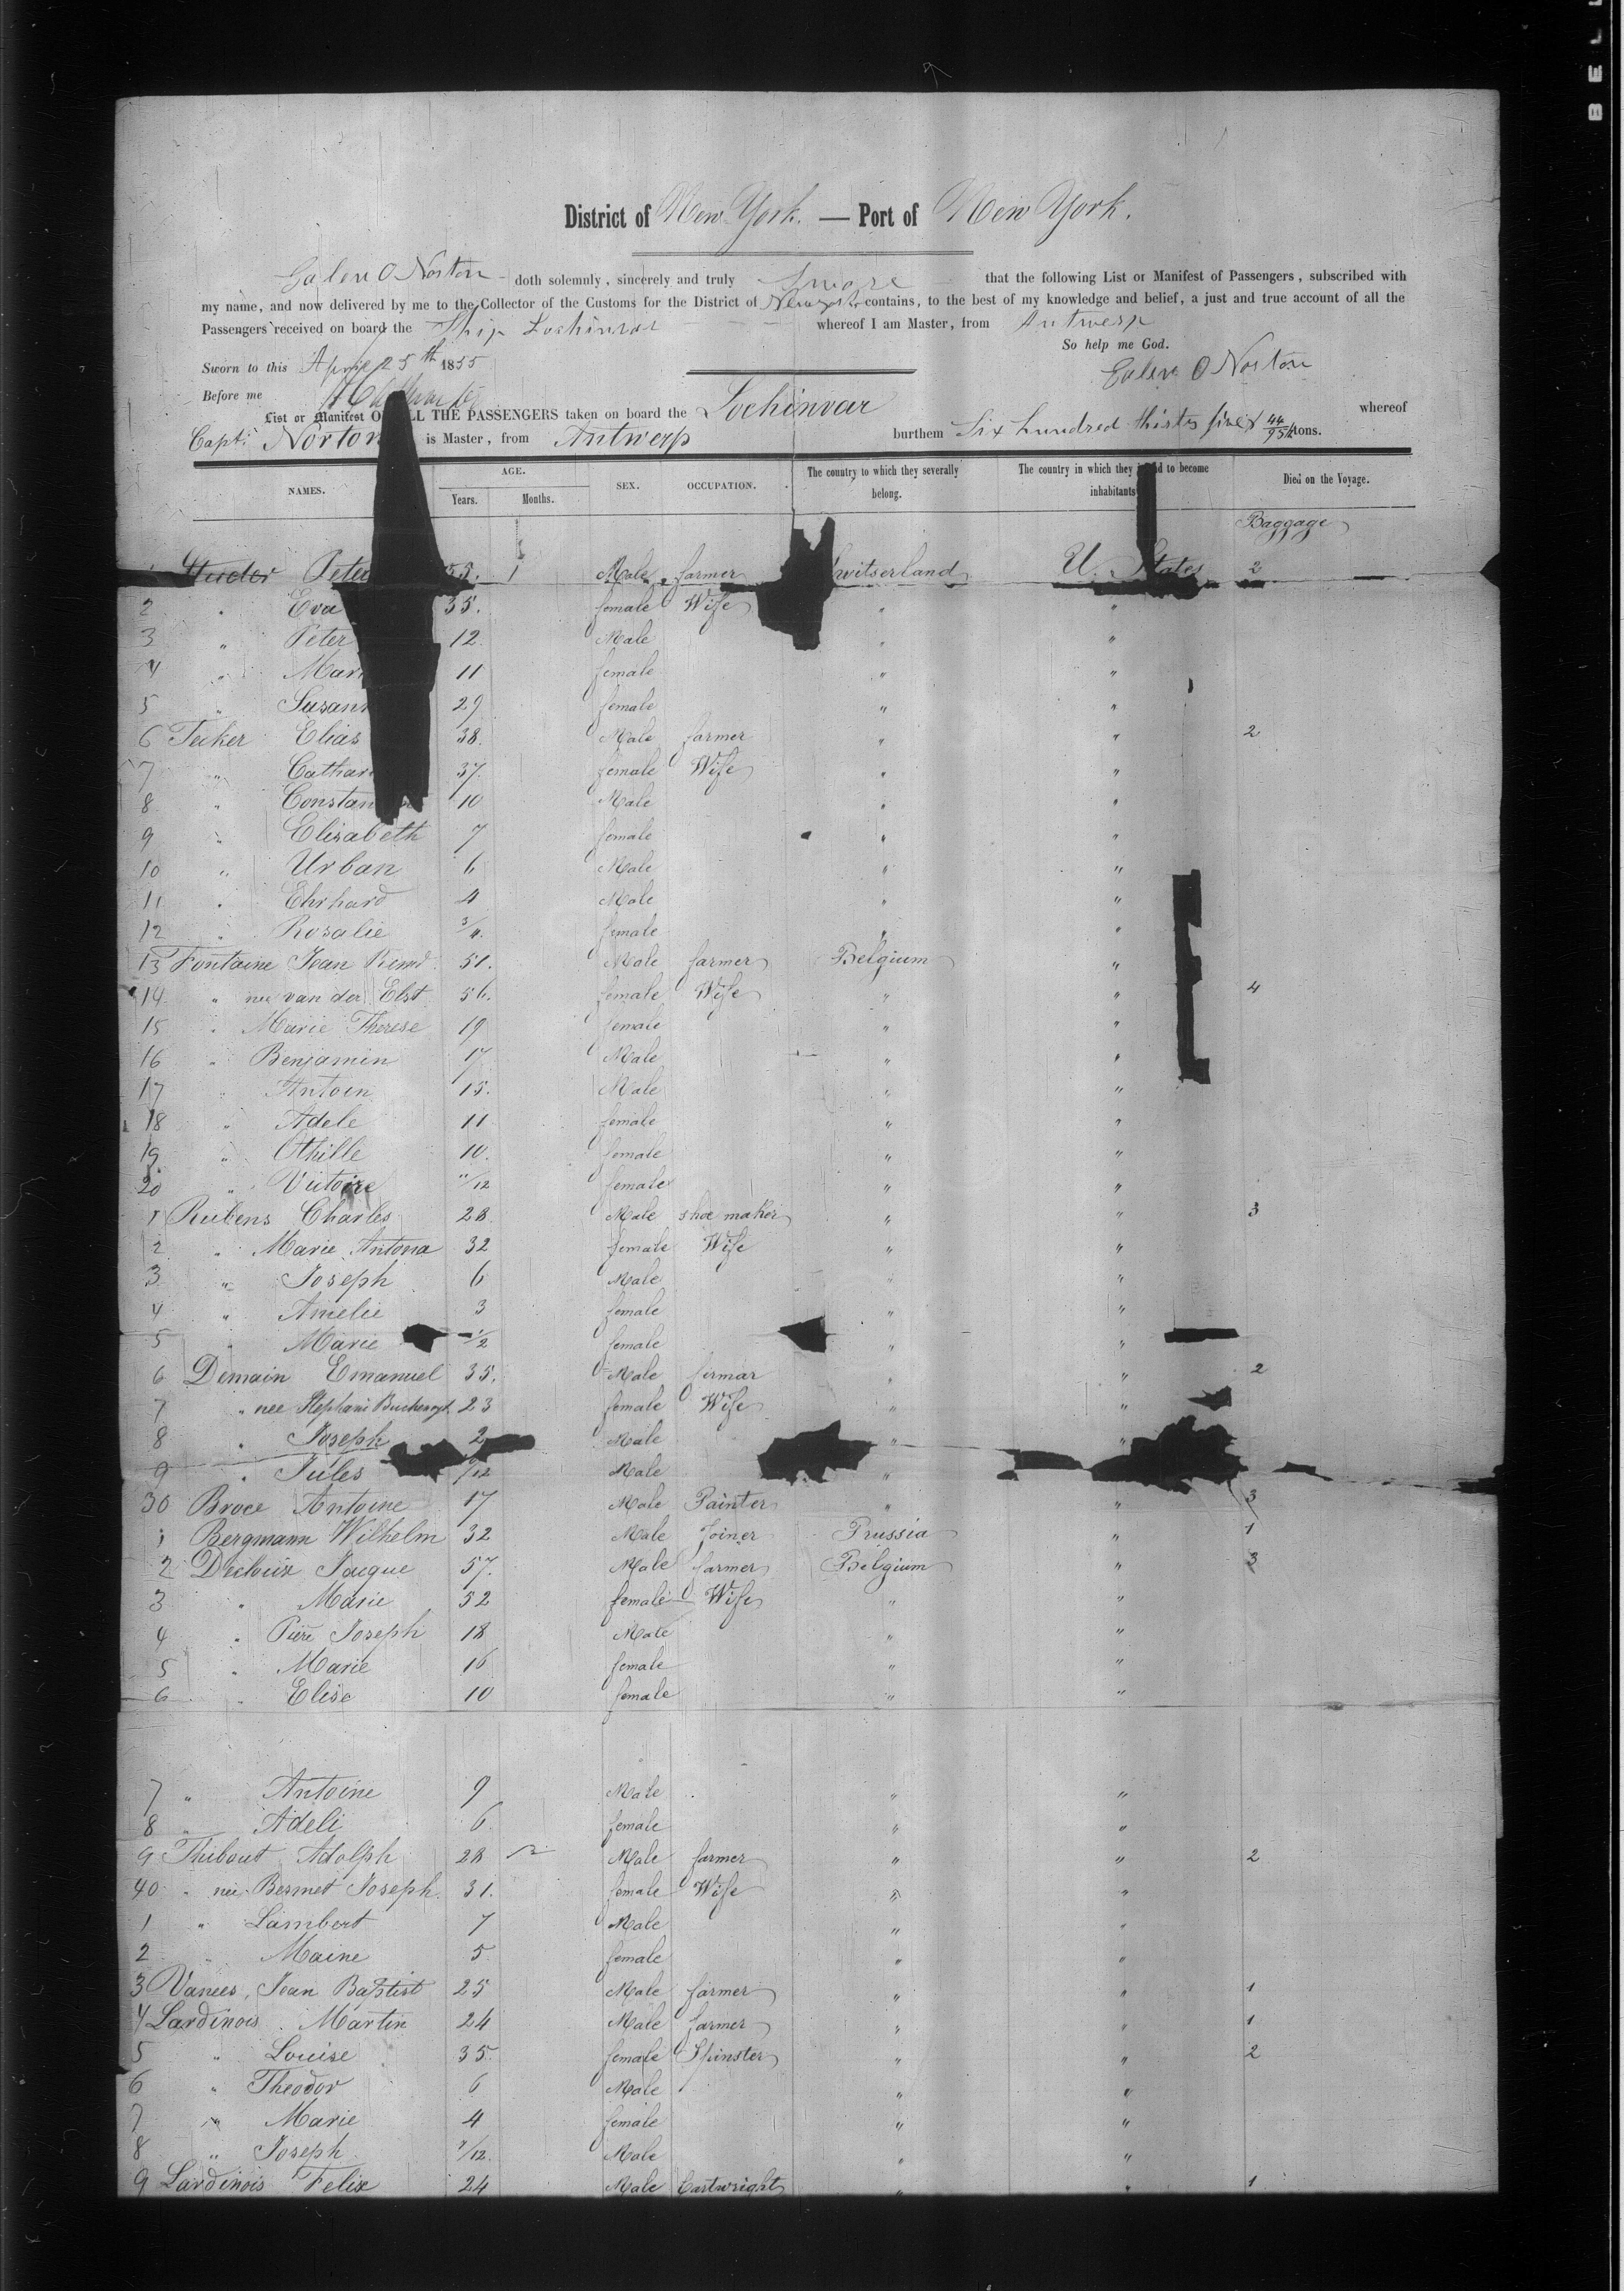 District of New York. — Port of New York.
Galen O Norton doth solemnly, sincerely and truly Sware that the following List or Manifest of Passengers, subscribed with
my name, and now delivered by me to the Collector of the Customs for the District of New York contains, to the best of my knowledge and belief, a just and true account of all the
Passengers received on board the Ship Lochinvar whereof I am Master, from Antwerp
So help me God.
Sworn to this April 25th 1855
Galen O Norton
Before me
List or Manifest OF ALL THE PASSENGERS taken on board the Lochinvar whereof
Capt: Norton is Master, from Antwerp burthem Six hundred thirty five & 44/95 tons.
NAMES. AGE. Years. Months. SEX. OCCUPATION. The country to which they severally belong. The country in which they to become inhabitants Died on the Voyage.
Baggage
Peter 55. Male farmer Switserland U. States 2
2 " Eva 35. female Wife " "
3 " Peter 12. Male " "
4 " Mari 11 female " "
5 " Susann 29 female " "
6 Tecker Elias 38. Male farmer " " 2
7 " Cathar 37. female Wife " "
8 " Constan 10 Male " "
9 " Elisabeth 7 female " "
10 " Urban 6 Male " "
11 " Ehrhard 4 Male " "
12 " Rosalie 3/4. female " "
13 Fontaine Jean 51. Male farmer Belgium "
14 " nee van der Elst 56. female Wife " " 4
15 " Marie Therese 19 female " "
16 " Benjamin 17 Male " "
17 " Antoin 15. Male " "
18 " Adele 11 female " "
19 " Othille 10. female " "
20 " Victoire 11/12 female " "
1 Rubens Charles 28. Male shoe maker " " 3
2 " Marie Antona 32 female Wife " "
3 " Joseph 6 Male " "
4 " Amelie 3 female " "
5 " Marie 1/2 female " "
6 Demain Emanuel 35. Male farmar " " 2
7 " nee Stephani 23 female Wife " "
8 " Joseph 2 Male " "
9 " Jules /12 Male "
30 Broce Antoine 17 Male Painter " " 3
1 Bergmann Wilhelm 32 Male Joiner Prussia " 1
2 Decloux Jaque 57. Male farmer Belgium " 3
3 " Marie 52 female Wife " "
4 " Piere Joseph 18 Male " "
5 " Marie 16 female " "
6 " Elise 10 female " "
7 " Antoine 9 Male " "
8 " Adeli 6. female " "
9 Thibout Adolph 28 Male farmer " " 2
40 " nee Bermet Joseph. 31. female Wife " "
1 " Lambert 7 Male " "
2 " Maine 5 female " "
3 Vanees, Jean Baptist 25 Male farmer " " 1
4 Lardinois Martin 24 Male farmer " " 1
5 " Louise 35 female Spinster " " 2
6 " Theodor 6 Male " "
7 " Marie 4 female " "
8 " Joseph /12. Male " "
9 Lardinois Felix 24 Male Cartwright " " 1